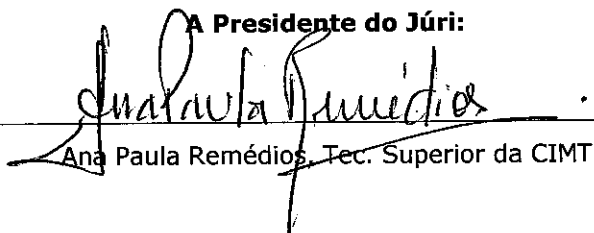 A Presidente do Júri:
Ana Paula Remédios
Ana Paula Remédios, Tec. Superior da CIMT